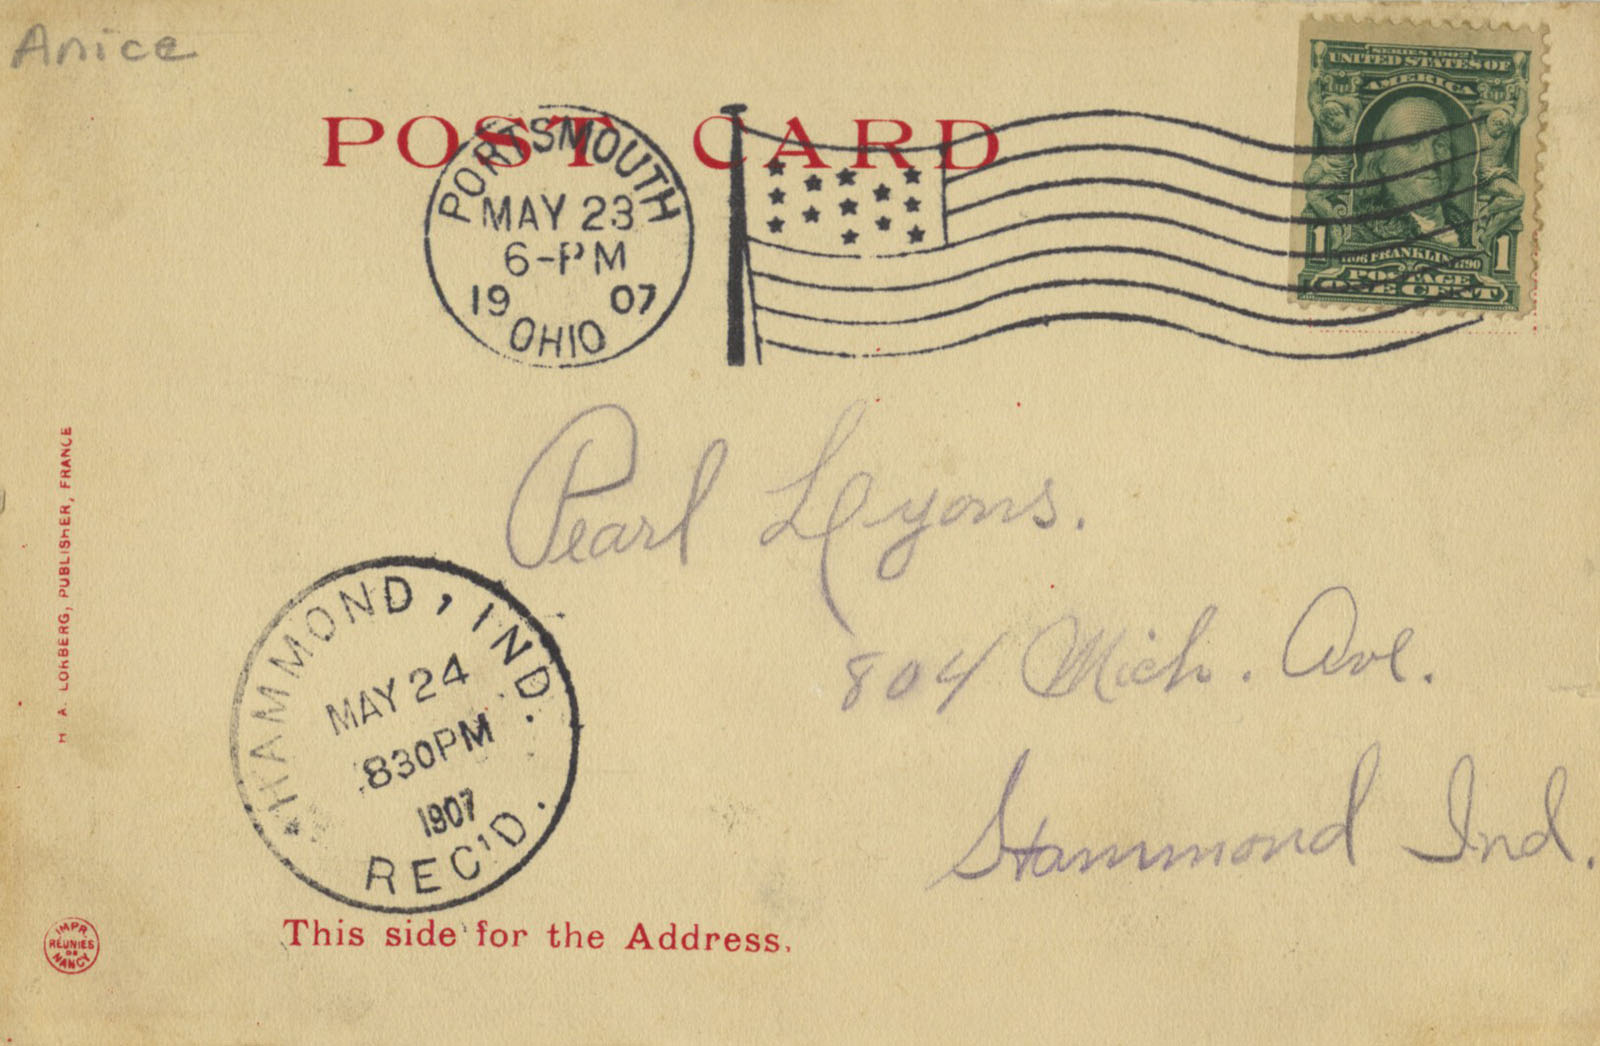 Anice
SERIES 1902
UNITED STATES OF
AMERICA
POST CARD
PORTSMOUTH
MAY 23
6-PM
19 07
OHIO
1 1
1706 FRANKLIN 1790
POSTAGE
ONE CENT
H. A. LORBERG, PUBLISHER, FRANCE
Pearl Lyons.
804 Mich. Ave.
Hammond Ind.
HAMMOND, IND.
MAY 24
830PM
1907
REC'D.
This side for the Address.
IMPR.
RÉUNIES
DE
NANCY